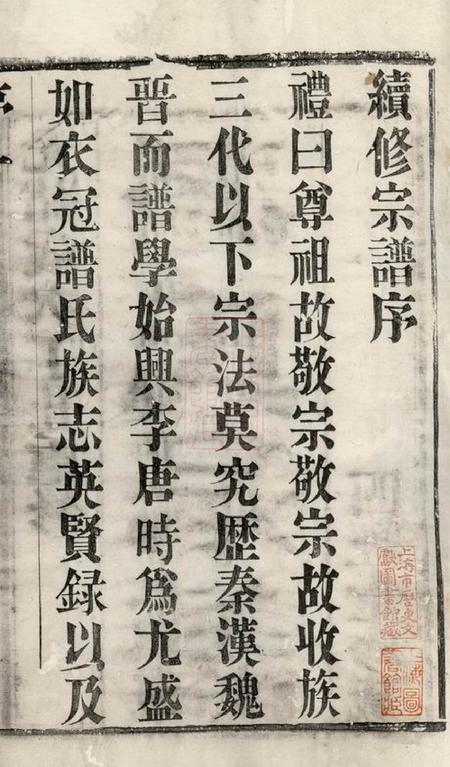 續修宗譜序
禮曰尊祖故敬宗敬宗故收族
三代以下宗法莫究歷秦漢魏
晋而譜學始興李唐時爲尤盛
如衣冠譜氏族志英賢録以及
上海市歷史文
獻圖書館藏